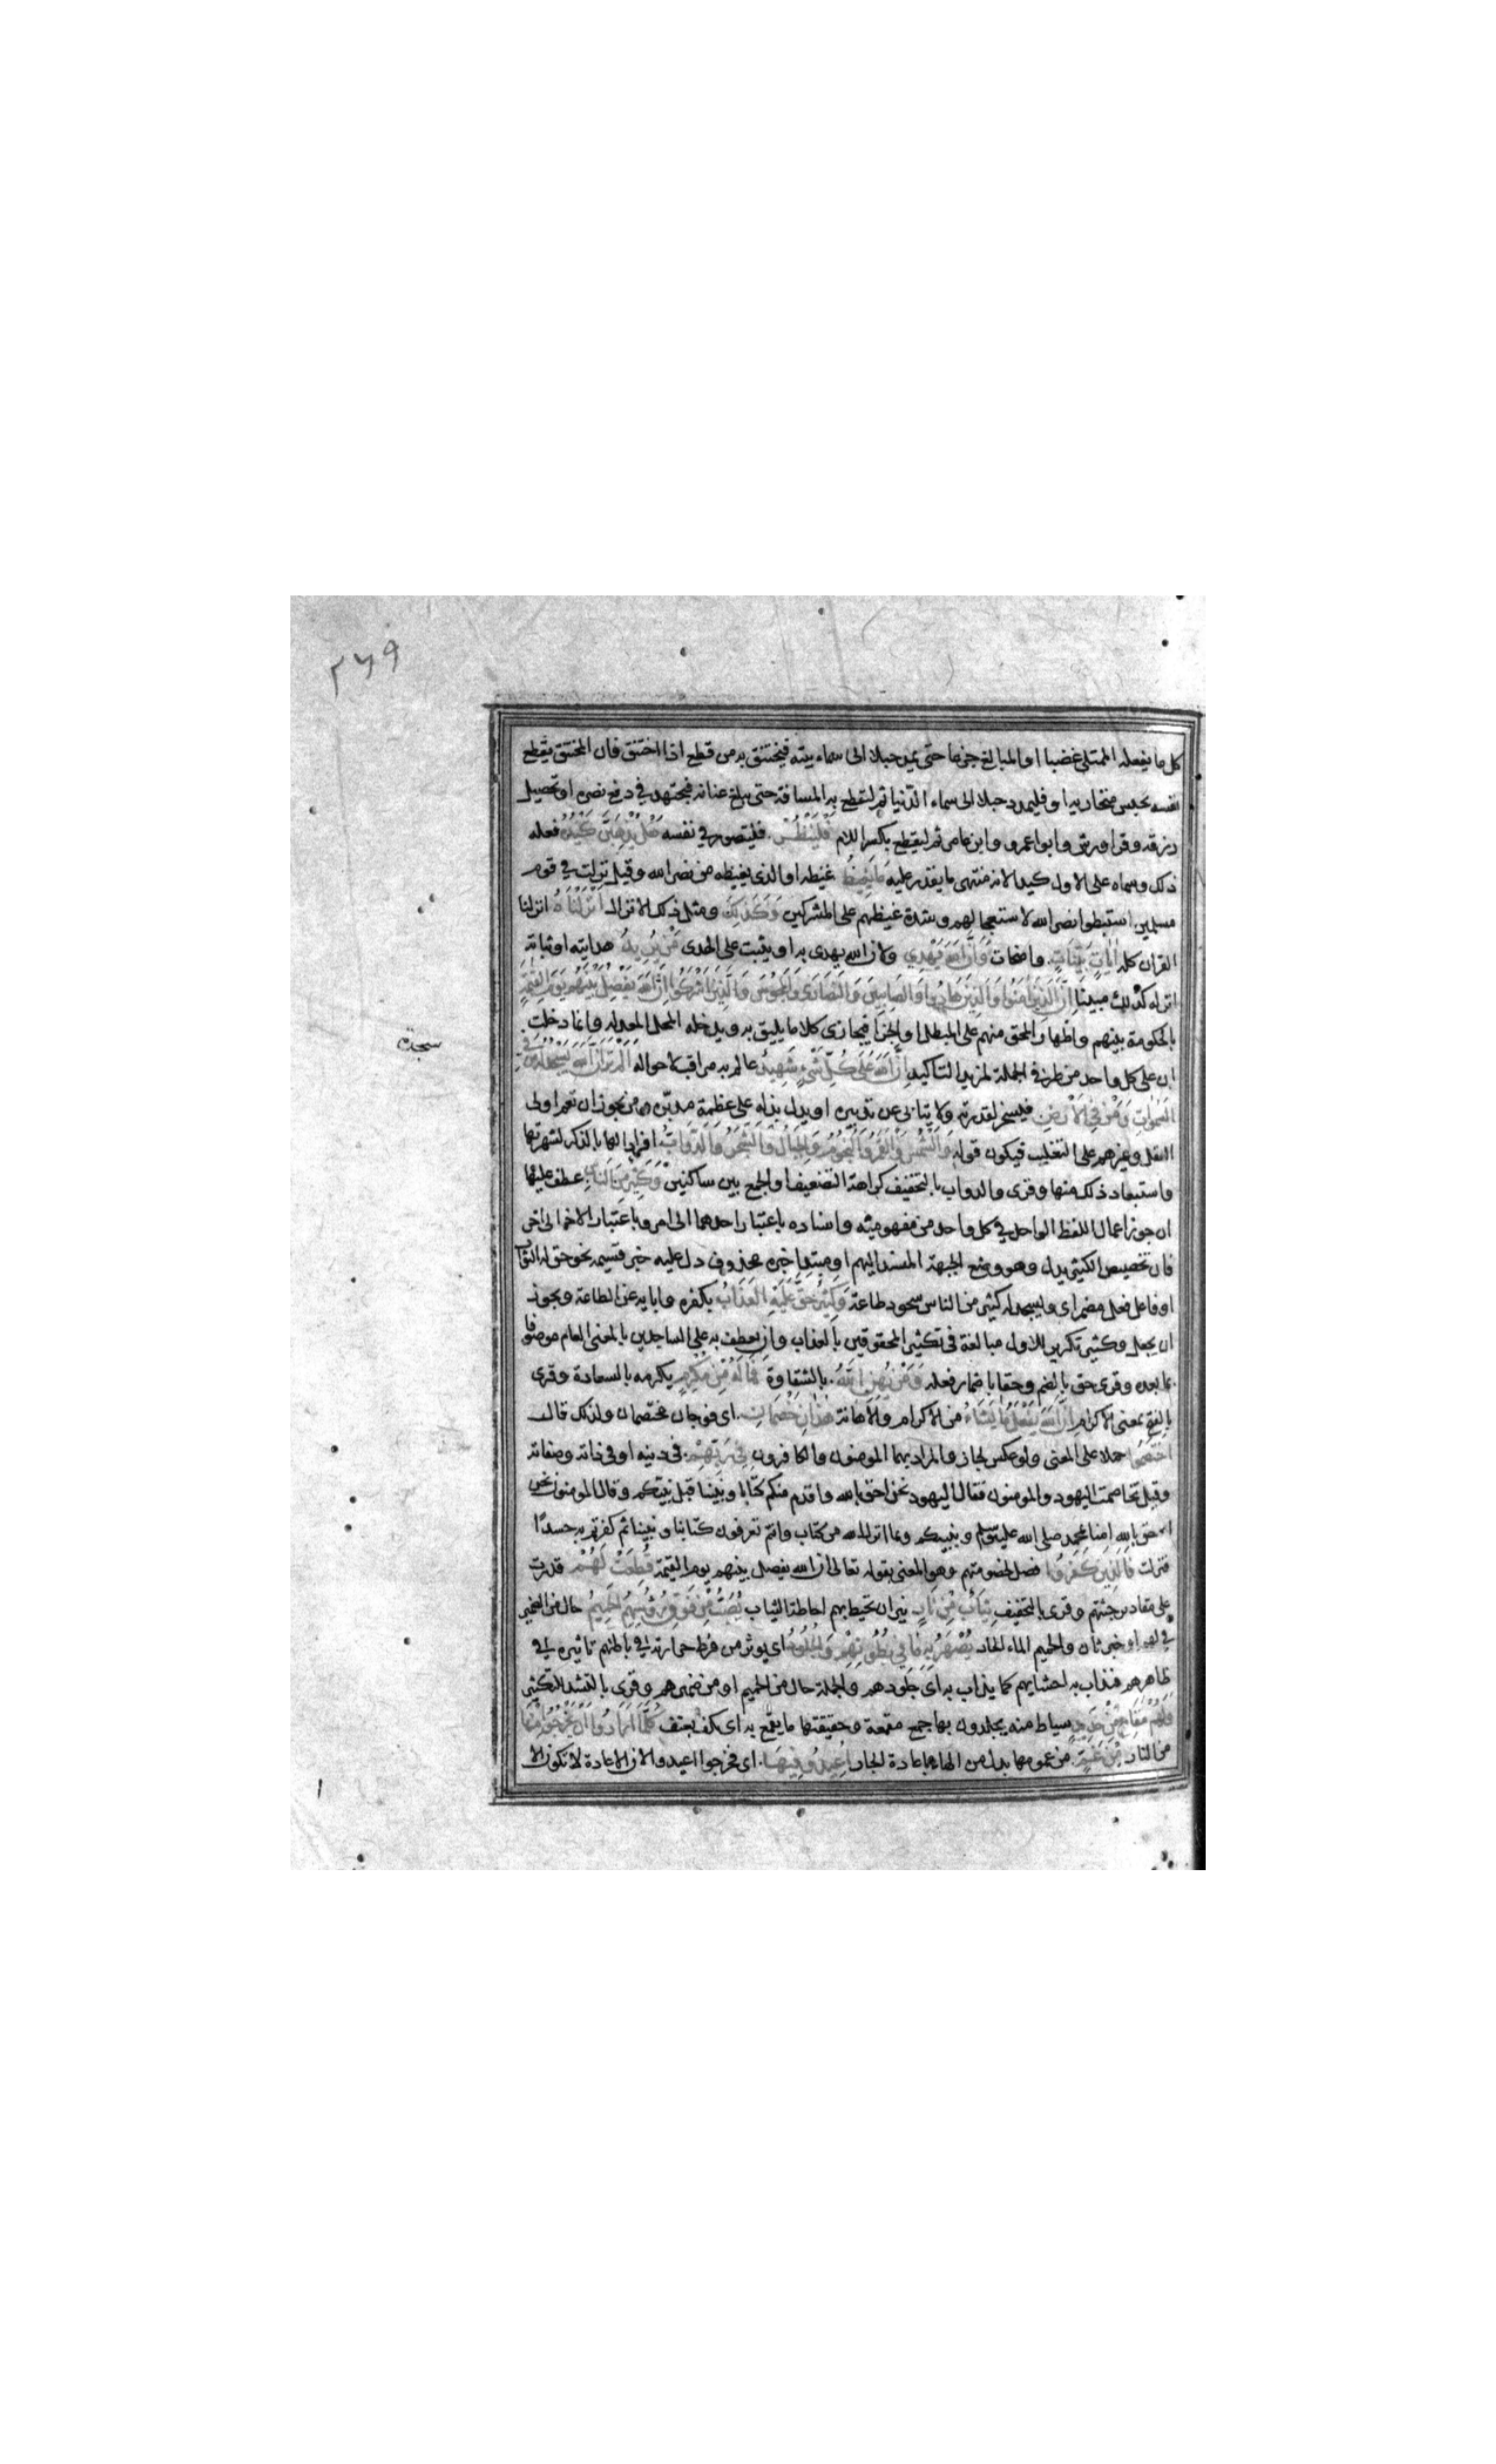 ٢٦٩
كل ما يفعله الممتلى غضبا او المبالغ جزعا حتى يمد حبلا الى سماء بيته فيختنق به من قطع اذا اختنق فان المختنق يقطع
نفسه بحبس مجاريه او فليمدد حبلا الى سماء الدنيا ثم ليقطع به المسافة حتى يبلغ عنانه فيجتهد في دفع نصره او تحصيل
رزقه وقرا ورش وابو اعمرو وابن عامر ثم ليقطع بكسر اللام فَلْيَنْظُرْ فليتصور في نفسه هَلْ يُذْهِبَنَّ كَيْدُهُ فعله
ذلك وسماه على الاول كيدا لانه منتهى ما يقدر عليه مَا يَغِيظُ غيظه او الذى يغيظه من نصر الله وقيل نزلت في قوم
مسلمين استبطوا نصر الله لاستعجالهم وشدة غيظهم على المشركين وَكَذَلِكَ ومثل ذلك الانزال اَنْزَلْنَاهُ انزلنا
القران كله اٰيَاتٍ بَيِّنَاتٍ واضحات وَاَنَّ اللهَ يَهْدِي ولان الله يهدى به او يثبت على الهدى مَنْ يُرِيدُ هدايته او ثباته
انزله كذلك مبينا اِنَّ الَّذِينَ اٰمَنُوا وَالَّذِينَ هَادُوا وَالصَّابِئِينَ وَالنَّصَارَى وَالْمَجُوسَ وَالَّذِينَ اَشْرَكُوا اِنَّ اللهَ يَفْصِلُ بَيْنَهُمْ يَوْمَ الْقِيٰمَةِ
بالحكومة بينهم واظهار المحق منهم على المبطل او الجزا فيجازى كلا ما يليق به ويدخله المحل المعد له وانما دخلت
ان على كل واحد من طرفى الجملة لمزيد التاكيد اِنَّ اللهَ عَلَى كُلِّ شَيْءٍ شَهِيدٌ عالم به مراقب لاحواله اَلَمْ تَرَ اَنَّ اللهَ يَسْجُدُ لَهُ مَنْ فِي
سجدة
السَّمٰوَاتِ وَمَنْ فِي الْاَرْضِ فيسخر لقدرته ولا يتابى عن تدبيره او يدل بذله على عظمة مدبره ومن يجوز ان تعم اولى
العقل وغيرهم على التغليب فيكون قوله وَالشَّمْسُ وَالْقَمَرُ وَالنُّجُومُ وَالْجِبَالُ وَالشَّجَرُ وَالدَّوَابُّ افرادا لها بالذكر لشهرتها
واستبعاد ذلك منها وقرى والدواب بالتخفيف كراهة التضعيف او الجمع بين ساكنين وَكَثِيرٌ مِنَ النَّاسِ عطف عليها
ان جوز اعمال اللفظ الواحد في كل واحد من مفهوميه واسناده باعتبار احدهما الى امر وباعتبار الاخر الى اخر
فان تخصيص الكثير يدل وهو وضع الجبهة المسند اليهم او مبتدا خبره محذوف دل عليه خبر قسيمه نحو حق له الثواب
او فاعل فعل مضمر اى وليسجد له كثير من الناس سجود طاعة وَكَثِيرٌ حَقَّ عَلَيْهِ الْعَذَابُ بكفره وابايه عن الطاعة ويجوز
ان يجعل وكثير تكريرا للاول مبالغة في تكثير المحقوقين بالعذاب وان يعطف به على الساجدين بالمعنى العام موصوفا
بما بعده وقرى حق بالضم وحقا باضمار فعله وَمَنْ يُهِنِ اللهُ بالشقاوة فَمَا لَهُ مِنْ مُكْرِمٍ يكرمه بالسعادة وقرى
بالفتح بمعنى الاكرام اِنَّ اللهَ يَفْعَلُ مَا يَشَاءُ من الاكرام والاهانة هٰذَانِ خَصْمَانِ اى فوجان مختصمان ولذلك قال
اخْتَصَمُوا حملا على المعنى ولو عكس لجاز والمراد بهما المومنون والكافرون فِي رَبِّهِمْ فى دينه او فى ذاته وصفاته
وقيل تخاصمت اليهود والمومنون فقال اليهود نحن احق بالله واقدم منكم كتابا ونبينا قبل نبيكم وقال المومنون نحن
احق بالله امنا بمحمد صلى الله عليه وسلم وبنبيكم وبما انزل الله من كتاب وانتم تعرفون كتابنا ونبينا ثم كفرتم به حسدا
فنزلت فَالَّذِينَ كَفَرُوا فصل لخصومتهم وهو المعنى بقوله تعالى ان الله يفصل بينهم يوم القيمة قُطِّعَتْ لَهُمْ قدرت
على مقادير جثتهم وقرى بالتخفيف ثِيَابٌ مِنْ نَارٍ نيران تحيط بهم احاطة الثياب يُصَبُّ مِنْ فَوْقِ رُؤُسِهِمُ الْحَمِيمُ حال من الضمير
في لهم او خبر ثان والحميم الماء الحار يُصْهَرُ بِهِ مَا فِي بُطُونِهِمْ وَالْجُلُودُ اى يوثر من فرط حرارته في باطنهم تاثيره في
ظاهرهم فتذاب به احشايهم كما يذاب به اى جلودهم والجملة حال من الحميم او من ضميرهم وقرى بالتشديد للتكثير
وَلَهُمْ مَقَامِعُ مِنْ حَدِيدٍ سياط منه يجلدون بها جمع مقمعة وحقيقتها ما يقمع به اى يكف بعنف كُلَّمَا اَرَادُوا اَنْ يَخْرُجُوا مِنْهَا
من النار مِنْ غَمٍّ من غمومها بدل من الهاء باعادة الجار اُعِيدُوا فِيهَا اى فخرجوا اعيدوا لان الاعادة لا تكون الا